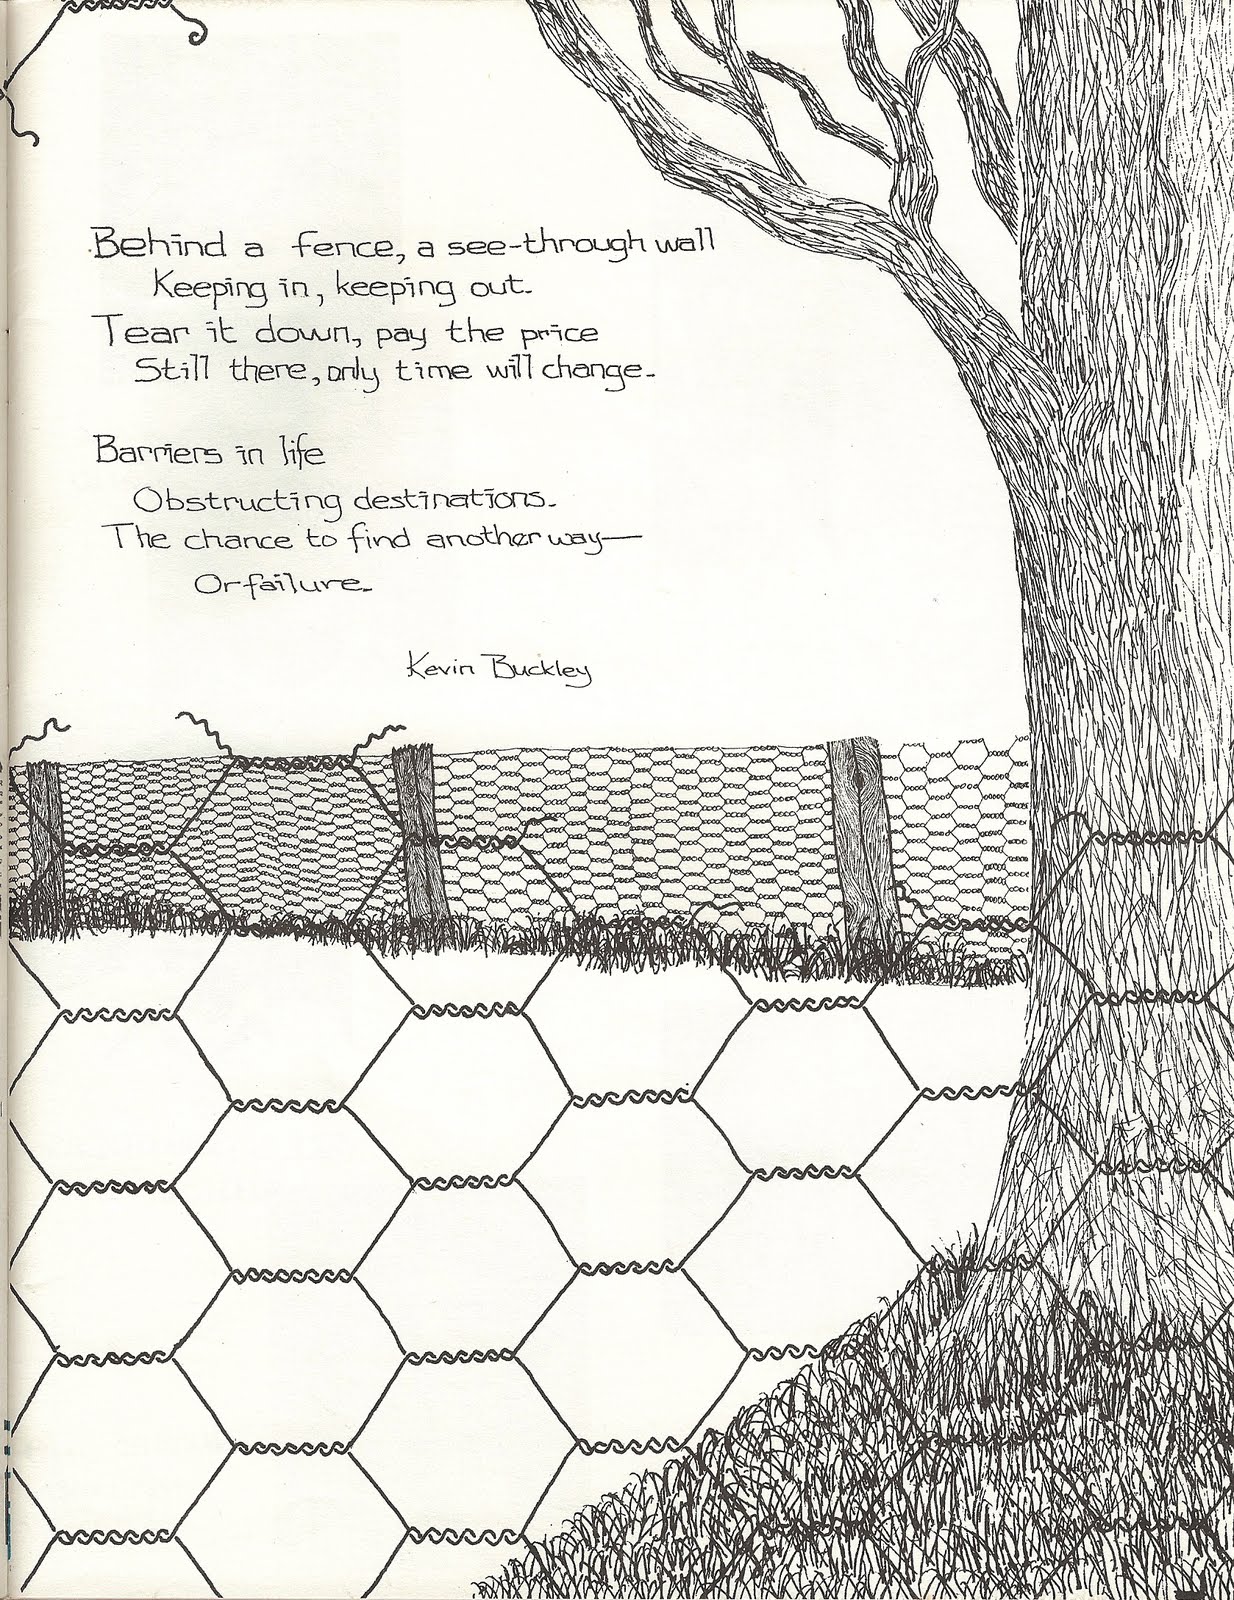 Behind a fence, a see-through wall
Keeping in, keeping out.
Tear it down, pay the price
Still there, only time will change.
Barriers in life
Obstructing destinations.
The chance to find another way—
Or failure.
Kevin Buckley